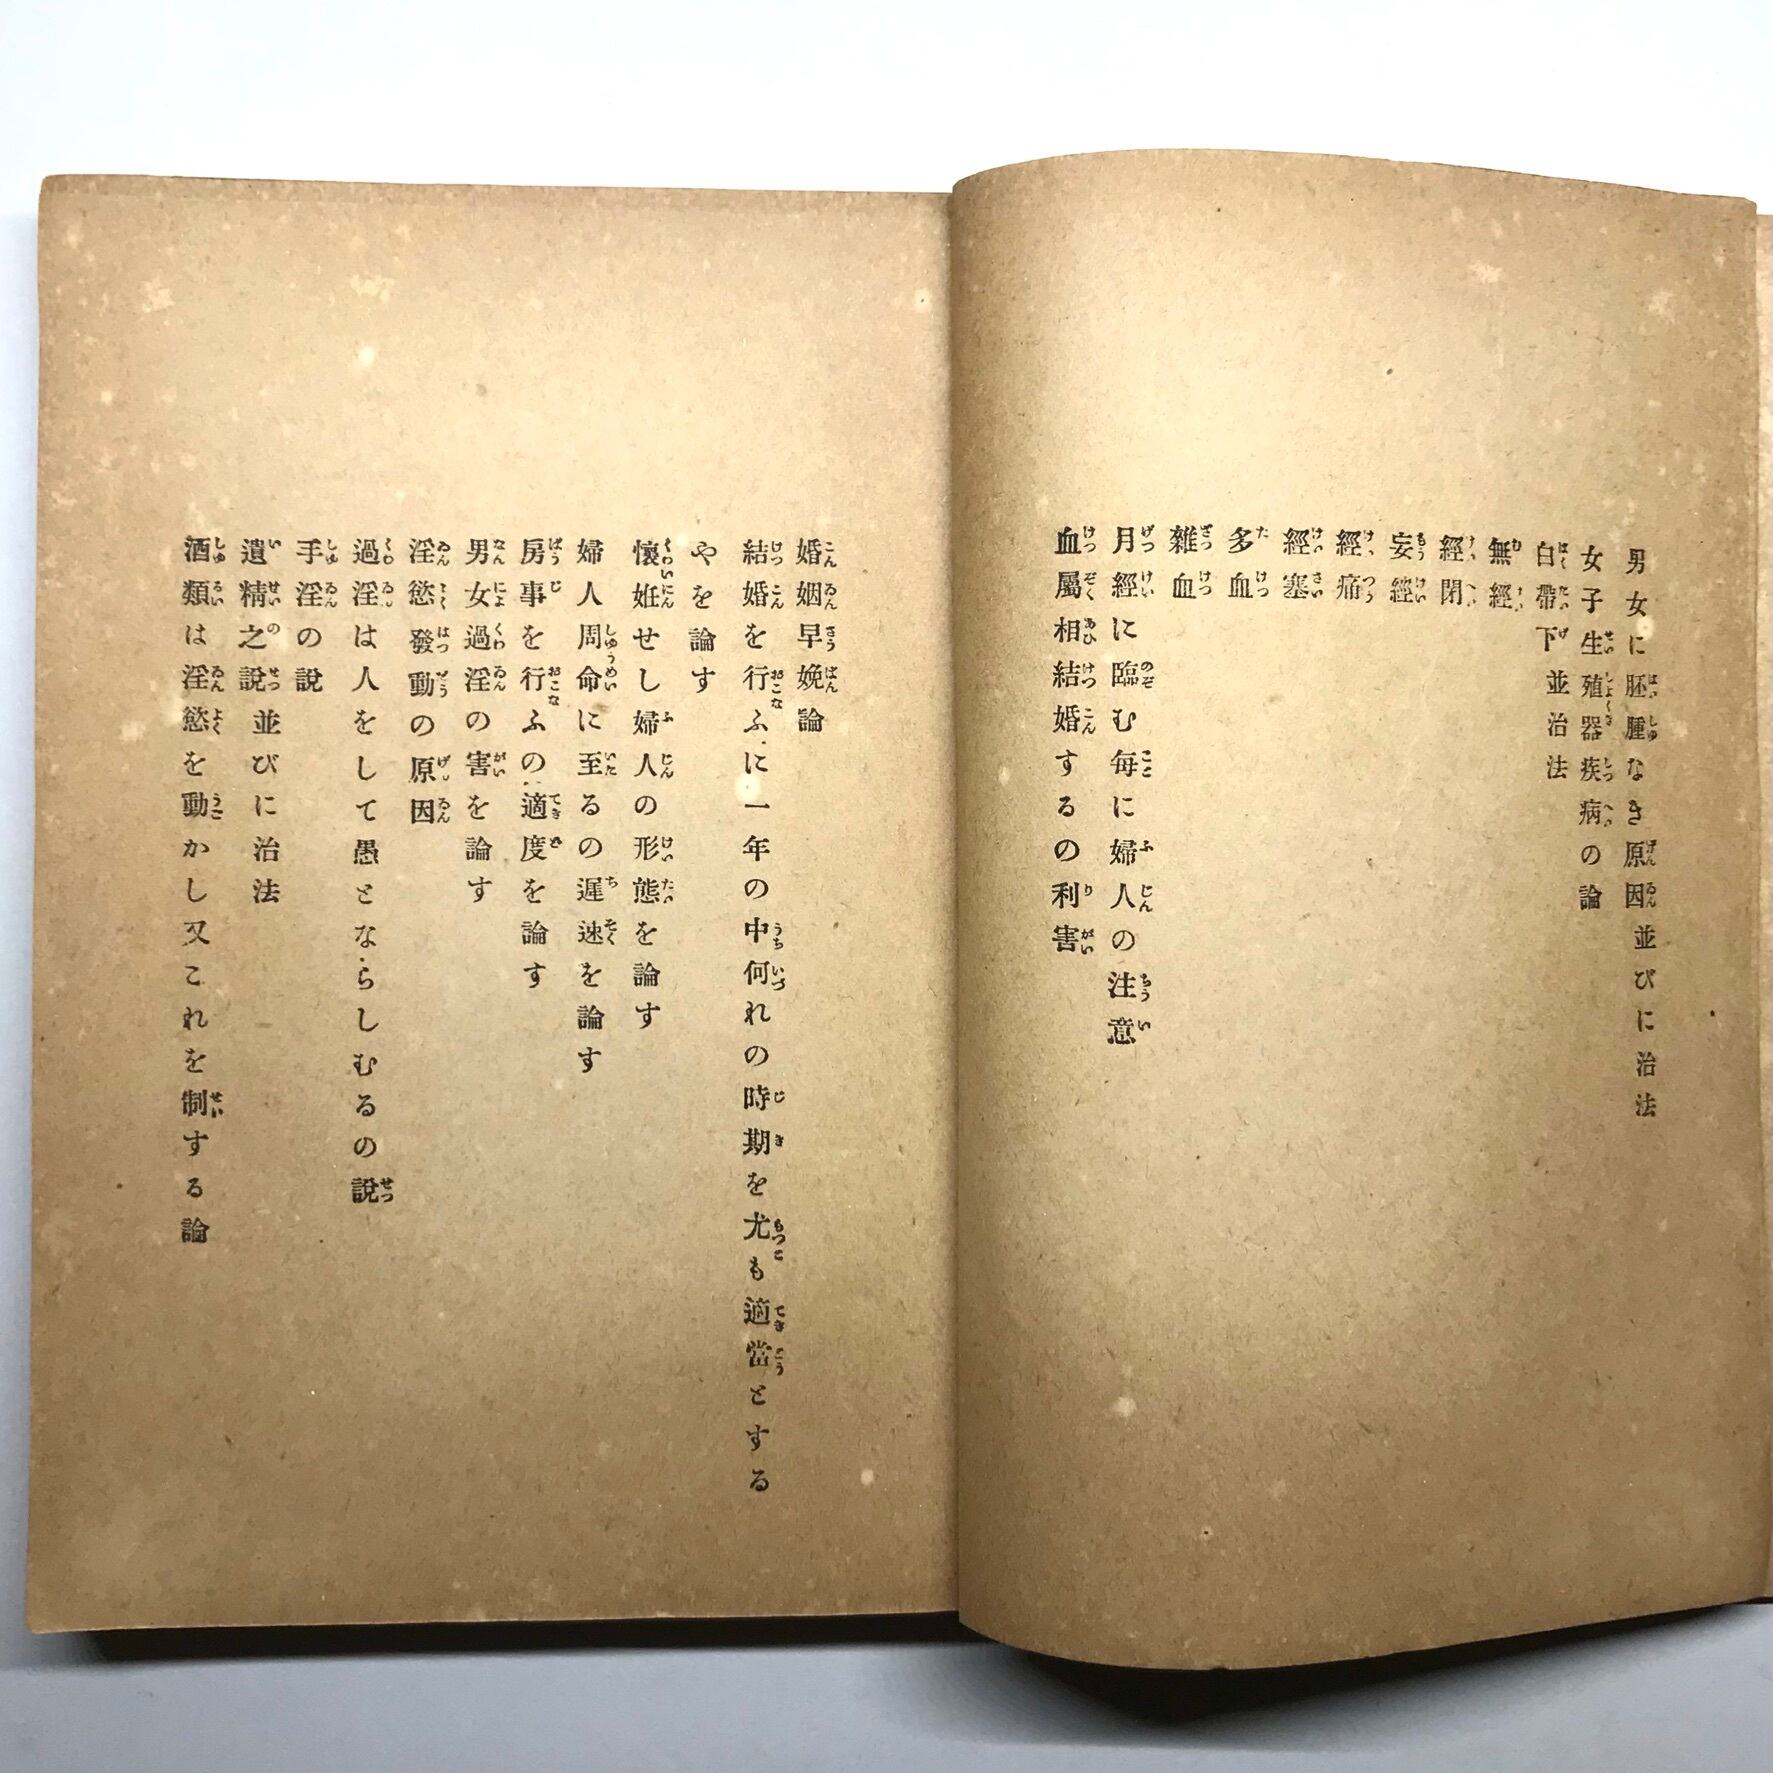 男女に胚腫なき原因並びに治法
女子生殖器疾病の論
白帶下並治法
無經
經閉
妄經
經痛
經塞
多血
雜血
月經に臨む毎に婦人の注意
血屬相結婚するの利害
婚姻早娩論
結婚を行ふに一年の中何れの時期を尤も適當とする
やを論す
懷妊せし婦人の形態を論す
婦人周命に至るの遲速を論す
房事を行ふの適度を論す
男女過淫の害を論す
淫慾發動の原因
過淫は人をして愚とならしむるの說
手淫の說
遺精之說並びに治法
酒類は淫慾を動かし又これを制する論